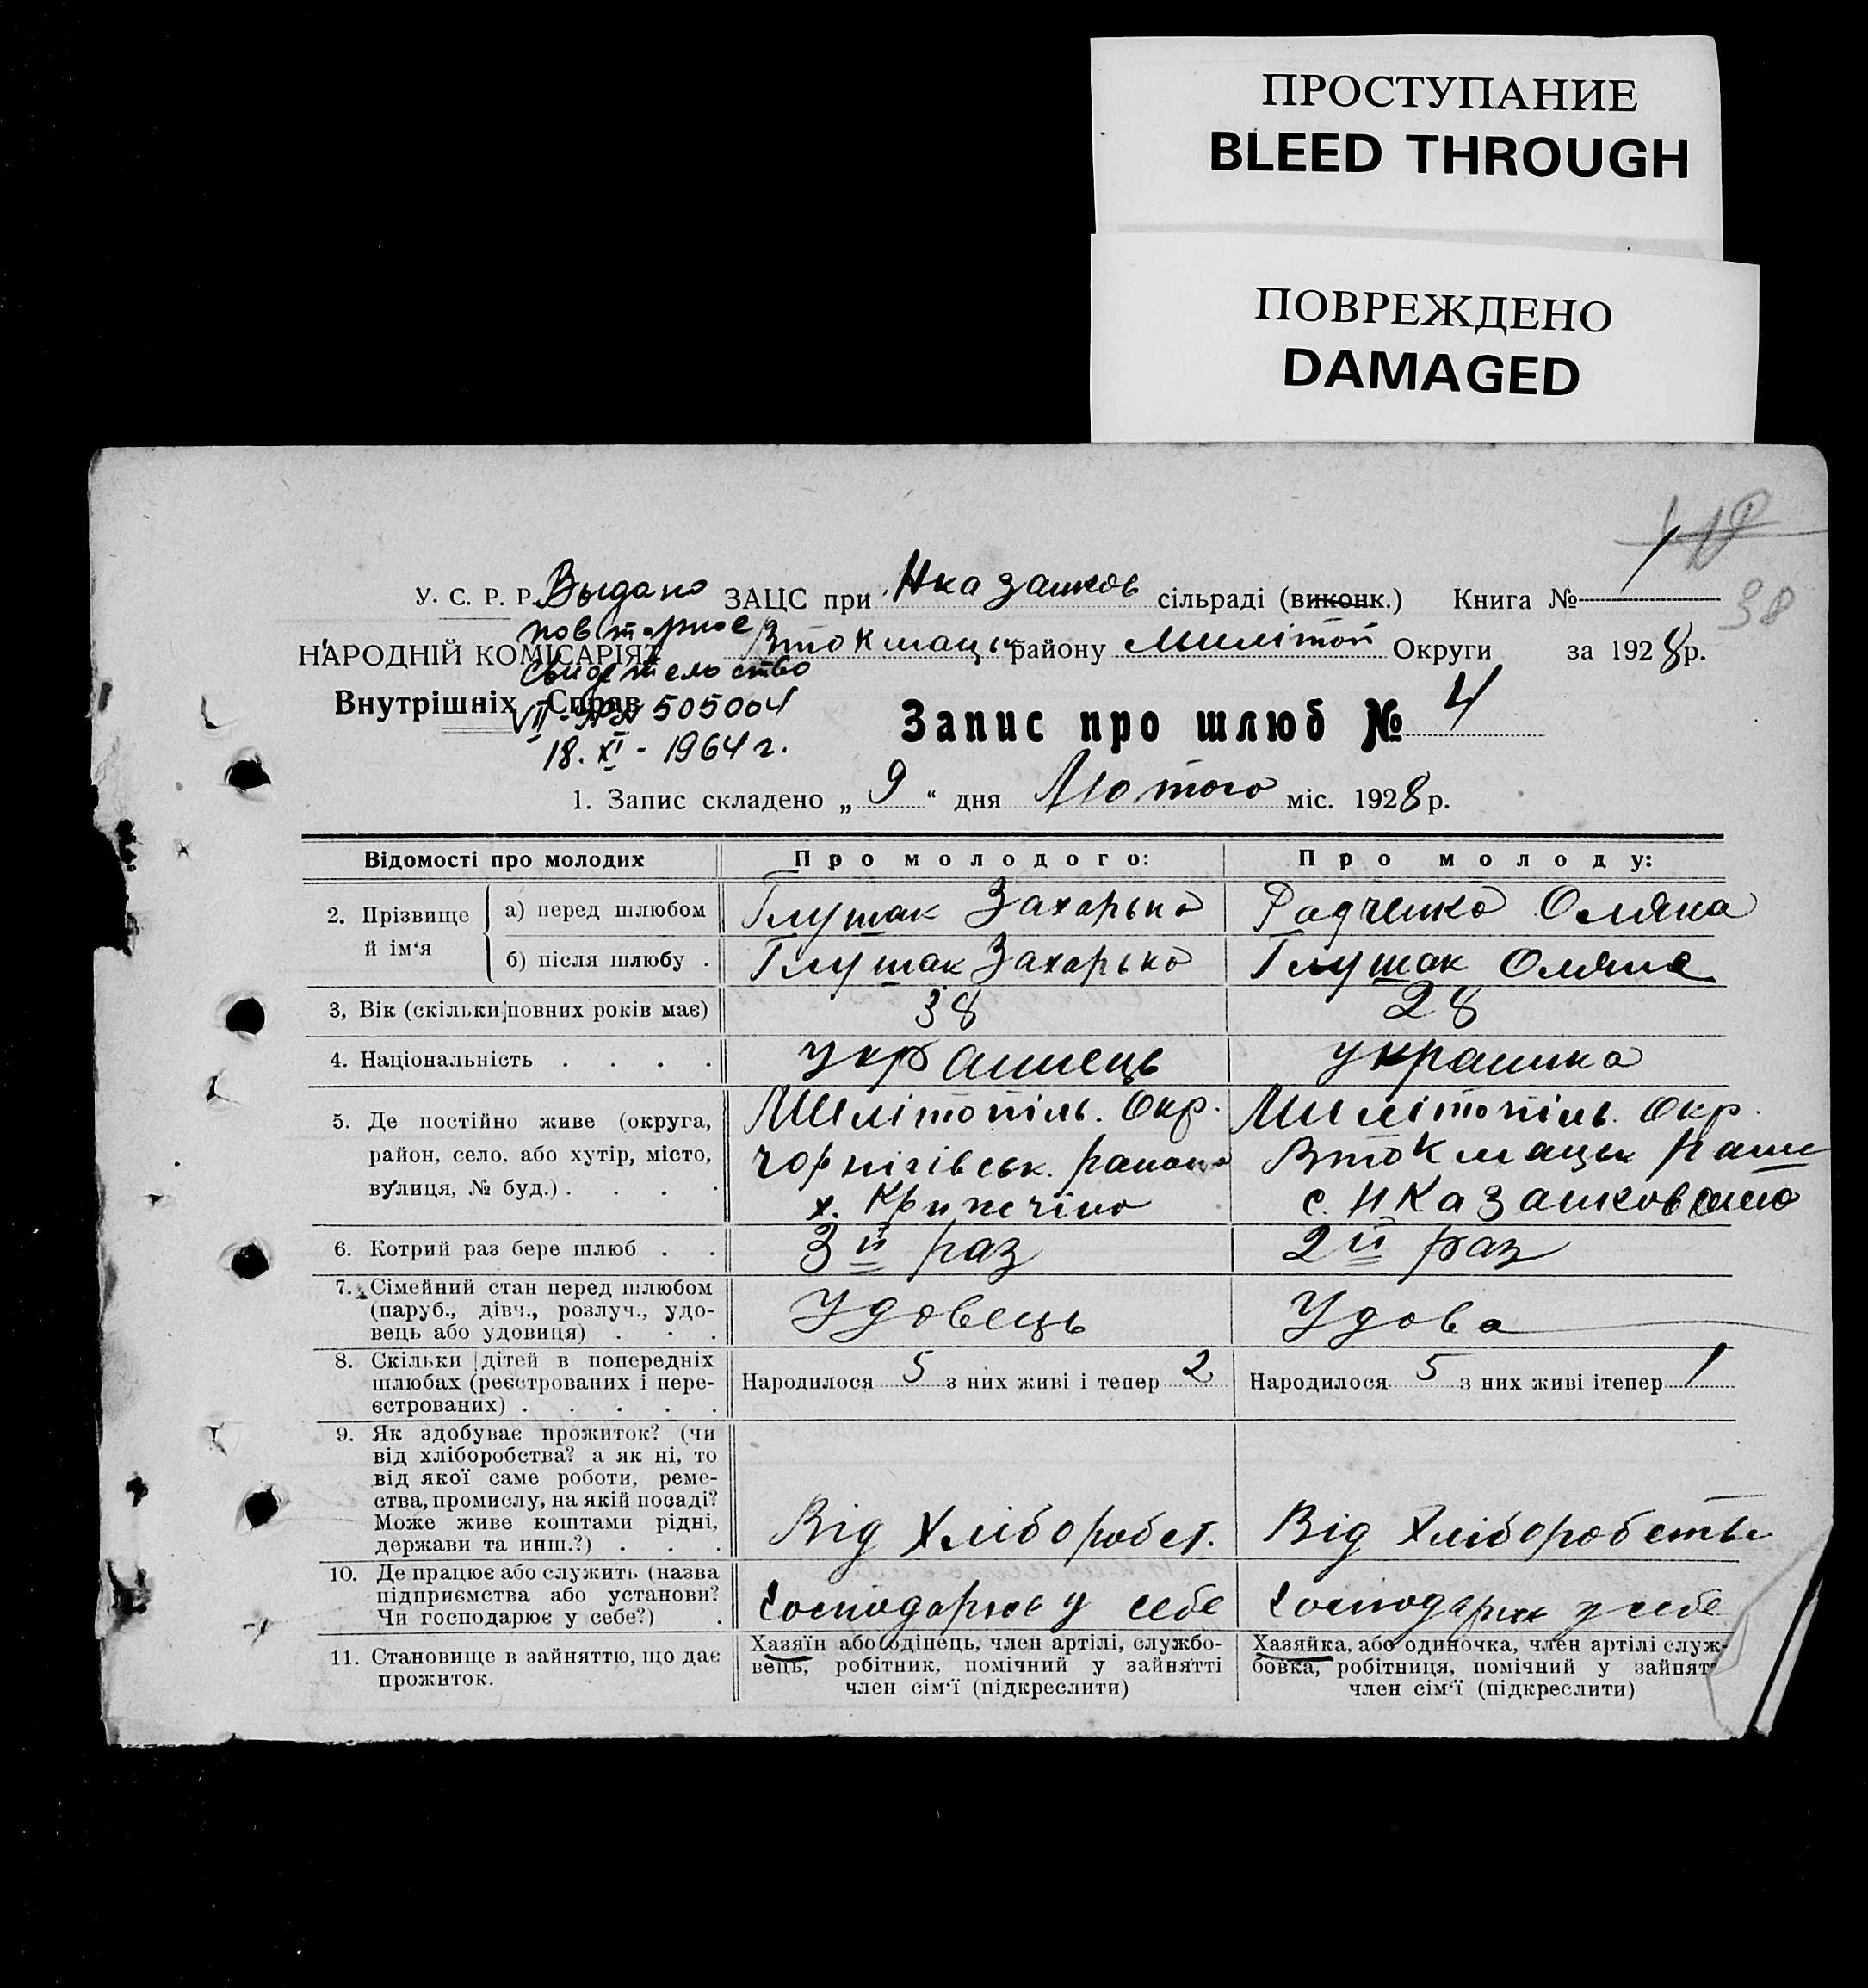 ПРОСТУПАНИЕ
BLEED THROUGH
ПОВРЕЖДЕНО
DAMAGED
38
У. С. Р. Р. ЗАЦС при Нказанков сільраді (виконк.) Книга № 1
НАРОДНІЙ КОМІСАРІЯТ Втокмацьк району Милітоп Округи за 1928 р.
Внутрішніх Справ
Выдано
повторное
свидетельство
505004
18. XI - 1964 г.
Запис про шлюб № 4
1. Запис складено „ 9 “ дня Лютого міс. 1928 р.
Відомості про молодих
Про молодого:
Про молоду:
2. Прізвище й ім‘я
а) перед шлюбом
Глушак Захарько
Радченко Оляна
б) після шлюбу .
Глушак Захарько
Глушак Оляна
3, Вік (скільки повних років має)
38
28
4. Національність . . . .
українець
українка
5. Де постійно живе (округа,
район, село, або хутір, місто,
вулиця, № буд.) . . . .
Милітопіль. Окр.
Чорнігівськ. район
х.
Милітопіль. Окр.
Втокмацьк Рай
с. НКазанковсько
6. Котрий раз бере шлюб . .
3й раз
2й раз
7. Сімейний стан перед шлюбом
(паруб., дівч., розлуч., удо-
вець або удовиця) . . .
Удовець
Удова
8. Скільки дітей в попередніх
шлюбах (реєстрованих і нере-
єстрованих) . . . . .
Народилося 5 з них живі і тепер 2
Народилося 5 з них живі ітепер 1
9. Як здобуває прожиток? (чи
від хліборобства? а як ні, то
від якої саме роботи, реме-
ства, промислу, на якій посаді?
Може живе коштами рідні,
держави та инш.?) . . .
Від Хліборобст.
Від Хліборобства
10. Де працює або служить (назва
підприємства або установи?
Чи господарює у себе?) .
Господарює у себе
Господарює у себе
11. Становище в зайняттю, що дає
прожиток.
Хазяїн або одінець, член артілі, службо-
вець, робітник, помічний у зайнятті
член сім‘ї (підкреслити)
Хазяйка, або одиночка, член артілі служ-
бовка, робітниця, помічний у зайнят
член сім‘ї (підкреслити)